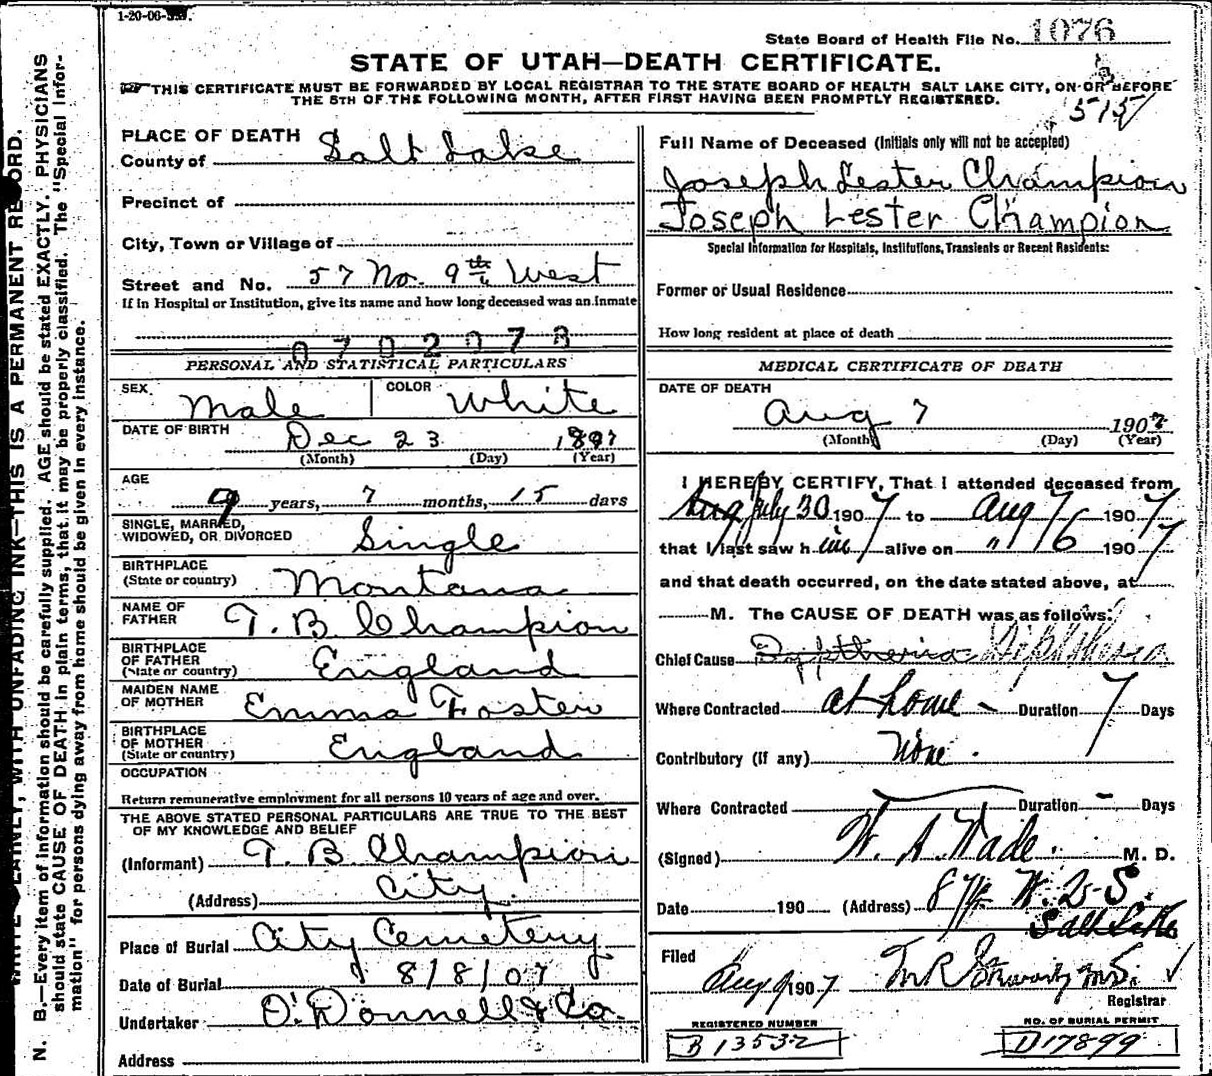 1-20-06-
State Board of Health File No. 1076
STATE OF UTAH—DEATH CERTIFICATE.
THIS CERTIFICATE MUST BE FORWARDED BY LOCAL REGISTRAR TO THE STATE BOARD OF HEALTH SALT LAKE CITY, ON OR BEFORE
THE 5TH OF THE FOLLOWING MONTH, AFTER FIRST HAVING BEEN PROMPTLY REGISTERED.
515
PLACE OF DEATH
County of Salt Lake
Precinct of
City, Town or Village of
Street and No. 57 No. 9th West
If in Hospital or Institution, give its name and how long deceased was an inmate
0702073
PERSONAL AND STATISTICAL PARTICULARS
SEX Male COLOR White
DATE OF BIRTH Dec 23 1897
(Month) (Day) (Year)
AGE 9 years, 7 months, 15 days
SINGLE, MARRIED,
WIDOWED, OR DIVORCED Single
BIRTHPLACE
(State or country) Montana
NAME OF
FATHER T. B. Champion
BIRTHPLACE
OF FATHER
(State or country) England
MAIDEN NAME
OF MOTHER Emma Foster
BIRTHPLACE
OF MOTHER
(State or country) England
OCCUPATION
Return remunerative employment for all persons 10 years of age and over.
THE ABOVE STATED PERSONAL PARTICULARS ARE TRUE TO THE BEST
OF MY KNOWLEDGE AND BELIEF
(Informant) T. B. Champion
(Address) City
Place of Burial City Cemetery
Date of Burial 8/8/07
Undertaker O'Donnell & Co.
Address
Full Name of Deceased (Initials only will not be accepted)
Joseph Lester Champion
Joseph Lester Champion
Special Information for Hospitals, Institutions, Transients or Recent Residents:
Former or Usual Residence
How long resident at place of death
MEDICAL CERTIFICATE OF DEATH
DATE OF DEATH
Aug 7 1907
(Month) (Day) (Year)
I HEREBY CERTIFY, That I attended deceased from
Aug July 30 1907 to Aug 7 1907
that I last saw him alive on " 6 1907
and that death occurred, on the date stated above, at
M. The CAUSE OF DEATH was as follows:
Chief Cause Dyptheria Diphtheria
Where Contracted at home - Duration 7 Days
Contributory (if any) None.
Where Contracted Duration - Days
(Signed) W. A. Wade. M. D.
Date 190 (Address) W. 2 S.
Salt Lake
Filed
Aug 9 1907
Registrar
REGISTERED NUMBER
B 13532
NO. OF BURIAL PERMIT
D17899
N. B.—Every item of information should be carefully supplied. AGE should be stated EXACTLY. PHYSICIANS
should state CAUSE OF DEATH in plain terms, that it may be properly classified. The "Special Infor-
mation" for persons dying away from home should be given in every instance.
WITH UNFADING INK—THIS IS A PERMANENT RECORD.